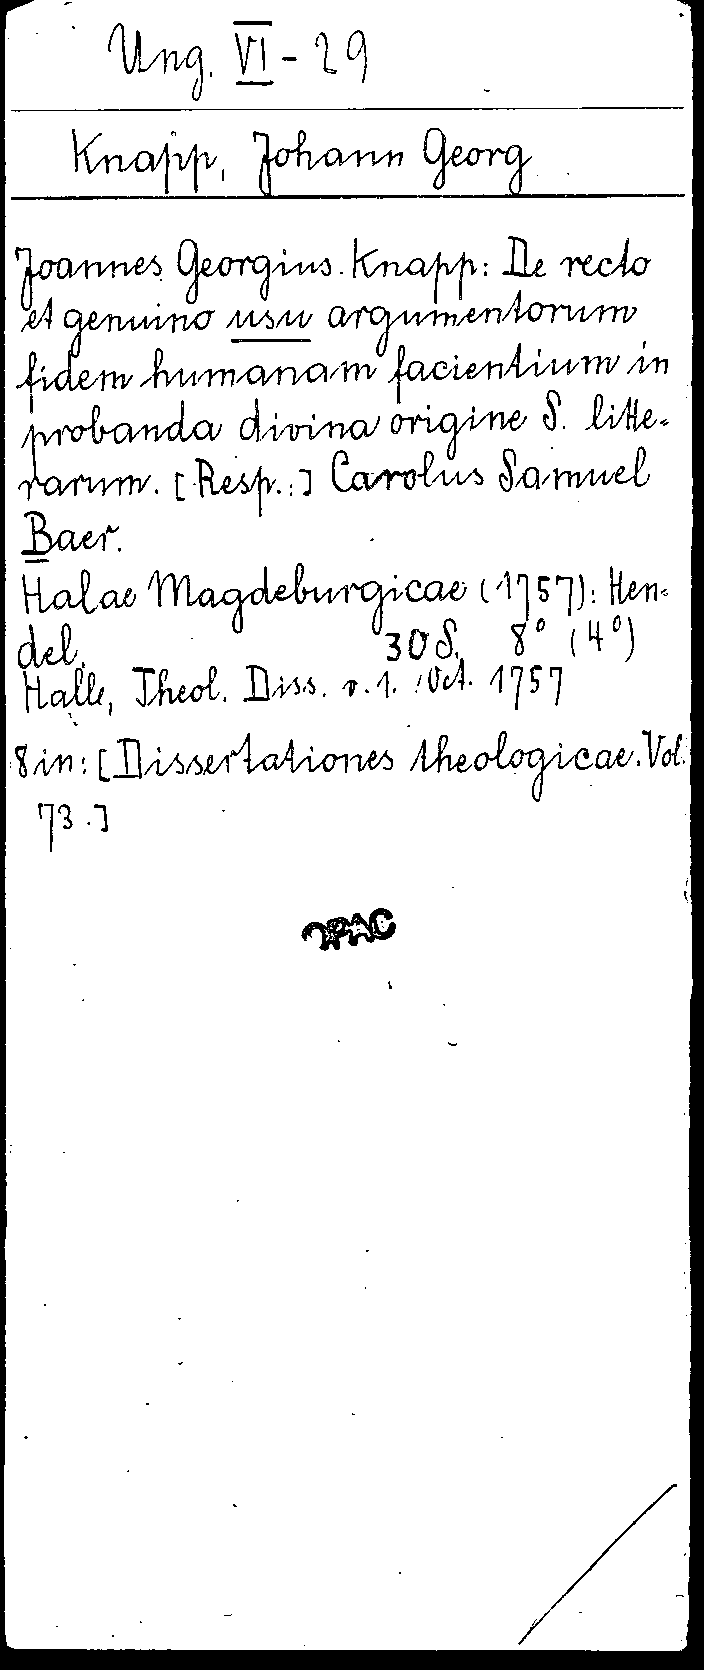 Ung. VI - 29
Knapp, Johann Georg
Joannes Georgius Knapp: De recto
et genuino usu argumentorum
fidem humanam facientium in
probanda divina origine S. litte-
rarum. [Resp.:] Carolus Samuel
Baer.
Halae Magdeburgicae (1757): Hen-
del. 30 S. 8° (4°)
Halle, Theol. Diss. v. 1. Oct. 1757
8 in: [Dissertationes theologicae. Vol.
73.]
OPAC